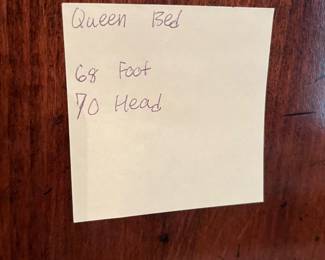 Queen Bed
68 Foot
70 Head